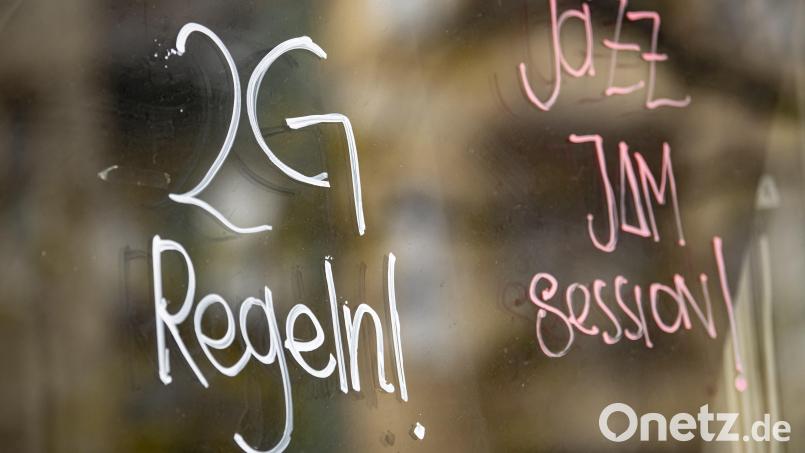 2G
Regeln!
Jazz
JAM
Session!
Onetz.de